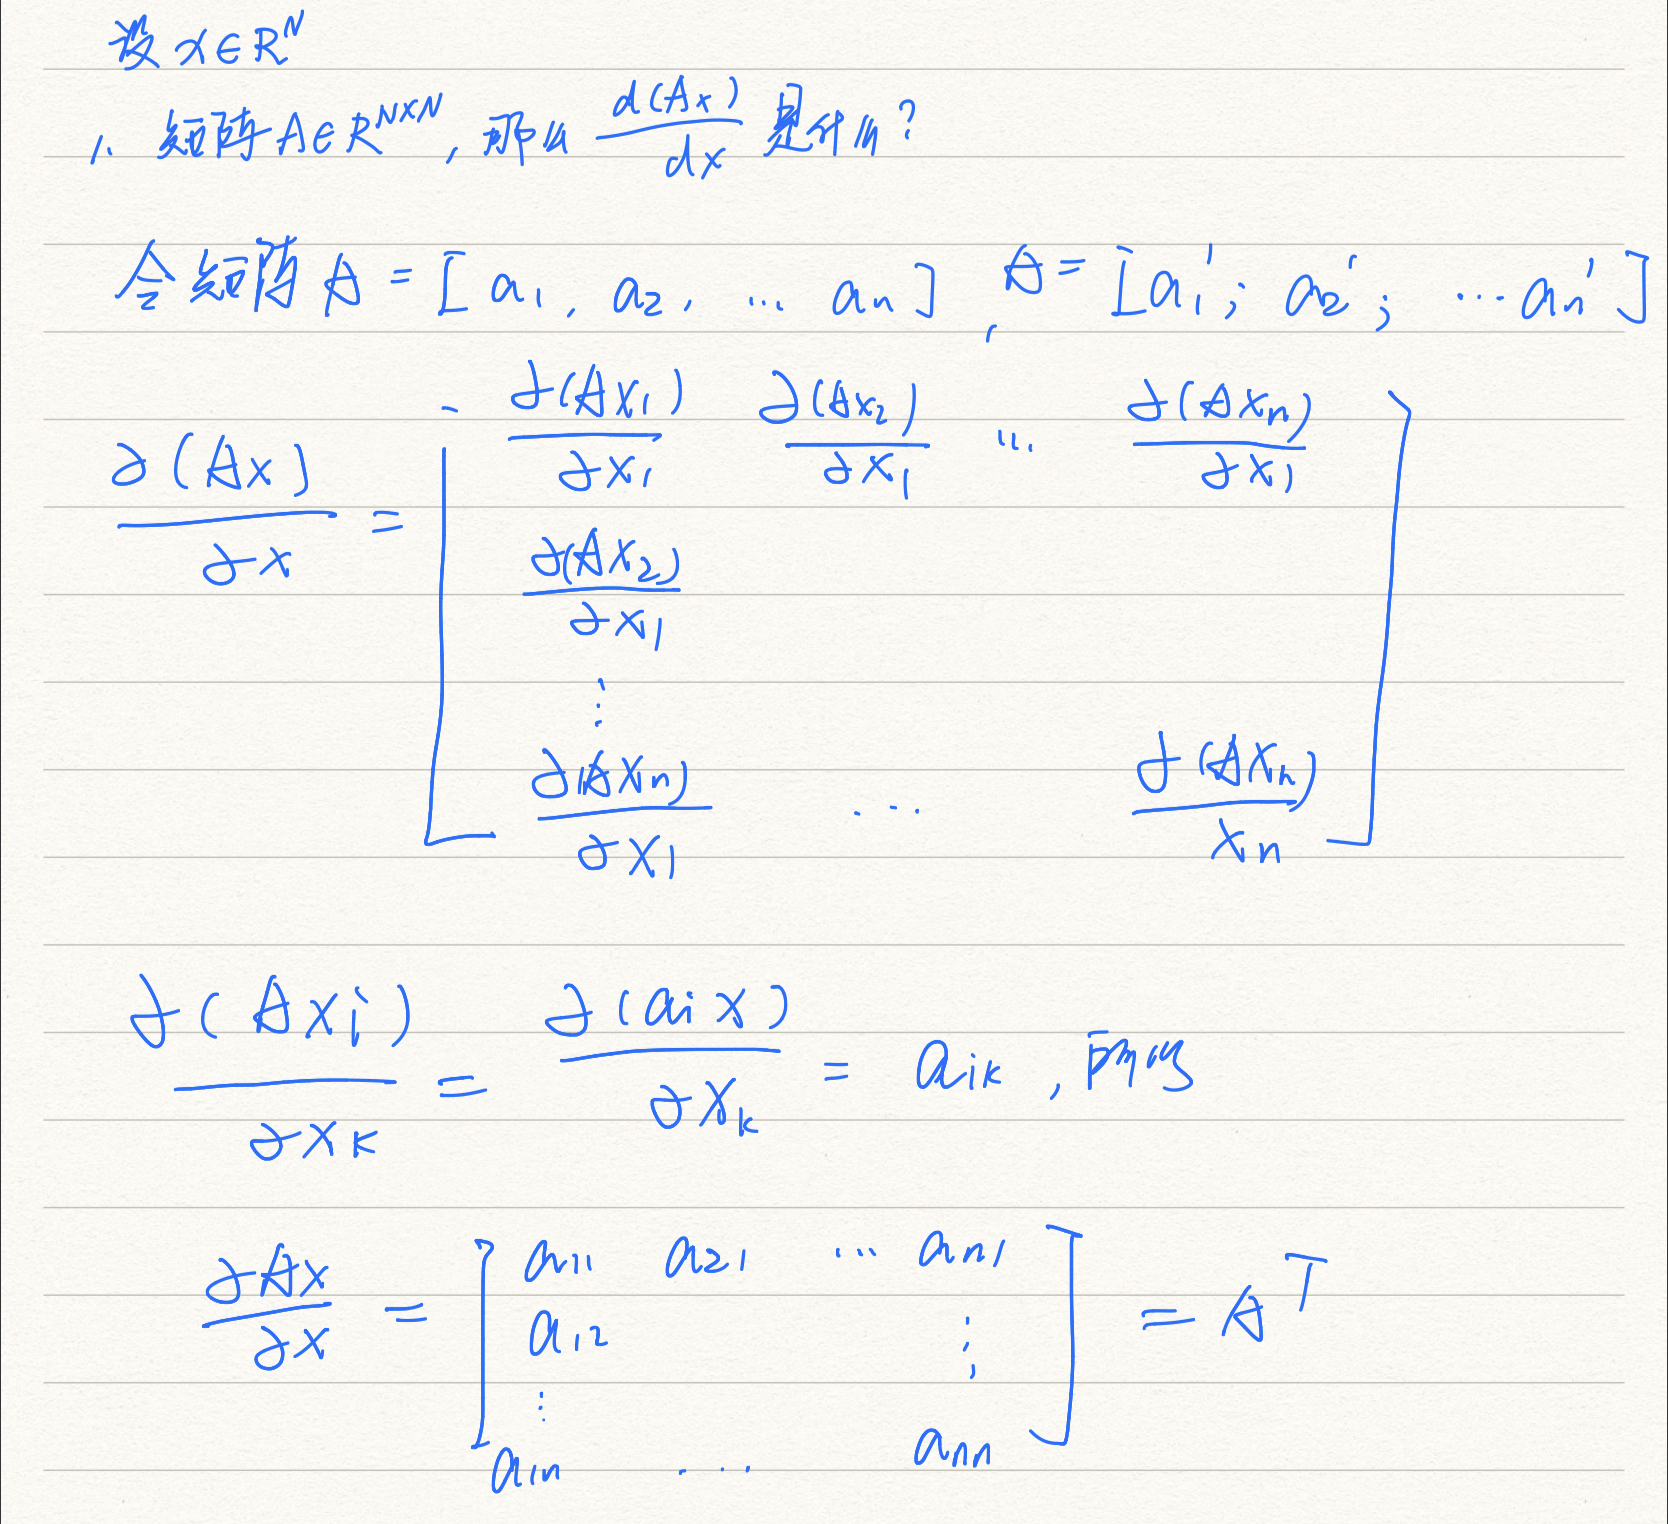 设 x∈R^N
1. 矩阵A∈R^{N×N}, 那么 d(Ax)/dx 是什么?
令矩阵A = [a₁, a₂, ... aₙ], A = [a₁'; a₂'; ... aₙ']
∂(Ax)/∂x = [ ∂(Ax₁)/∂x₁ ∂(Ax₂)/∂x₁ ... ∂(Axₙ)/∂x₁
∂(Ax₂)/∂x₁
⋮
∂(Axₙ)/∂x₁ ... ∂(Axₙ)/xₙ ]
∂(Axᵢ)/∂x_k = ∂(aᵢx)/∂x_k = a_{ik}, 所以
∂Ax/∂x = [ a₁₁ a₂₁ ... a_{n1}
a₁₂ ⋮
⋮
a_{1n} ... a_{nn} ] = A^T